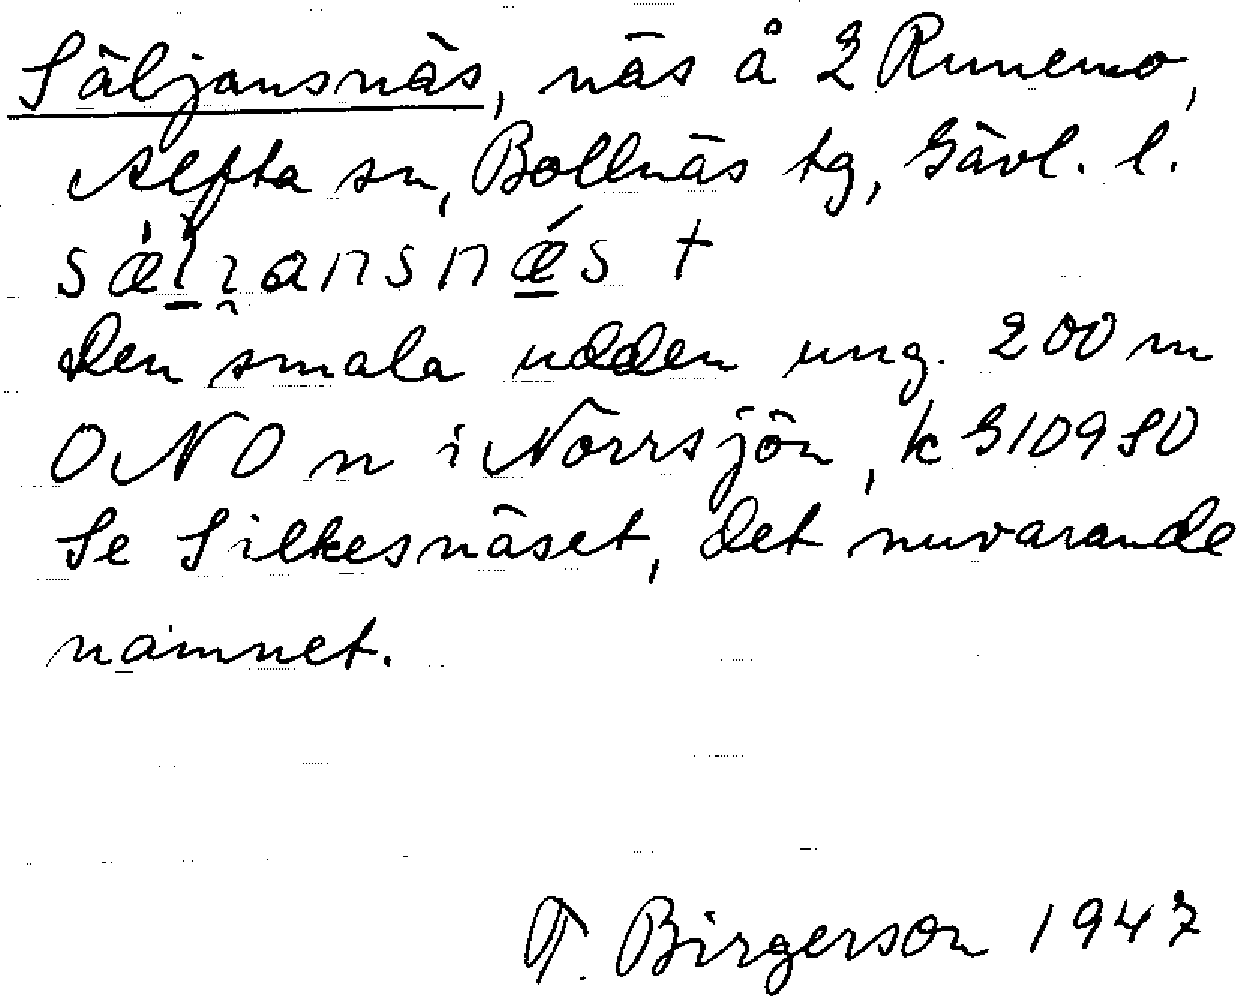 Säljansnäs, näs å 2 Runemo,
Alfta sn, Bollnäs tg, Gävl. l.
Den smala udden ung. 200 m
ONO n i Norrsjön, k G109S0
Se Silkesnäset, det nuvarande
namnet.
T. Birgerson 1947